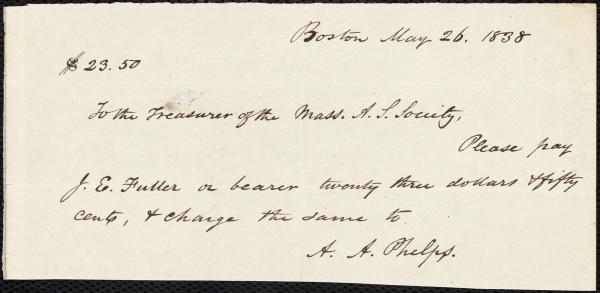 Boston May 26. 1838
$ 23.50
To the Treasurer of the Mass. A. S. Society,
Please pay
J. E. Fuller or bearer twenty three dollars & fifty
cents, & charge the same to
A. A. Phelps.